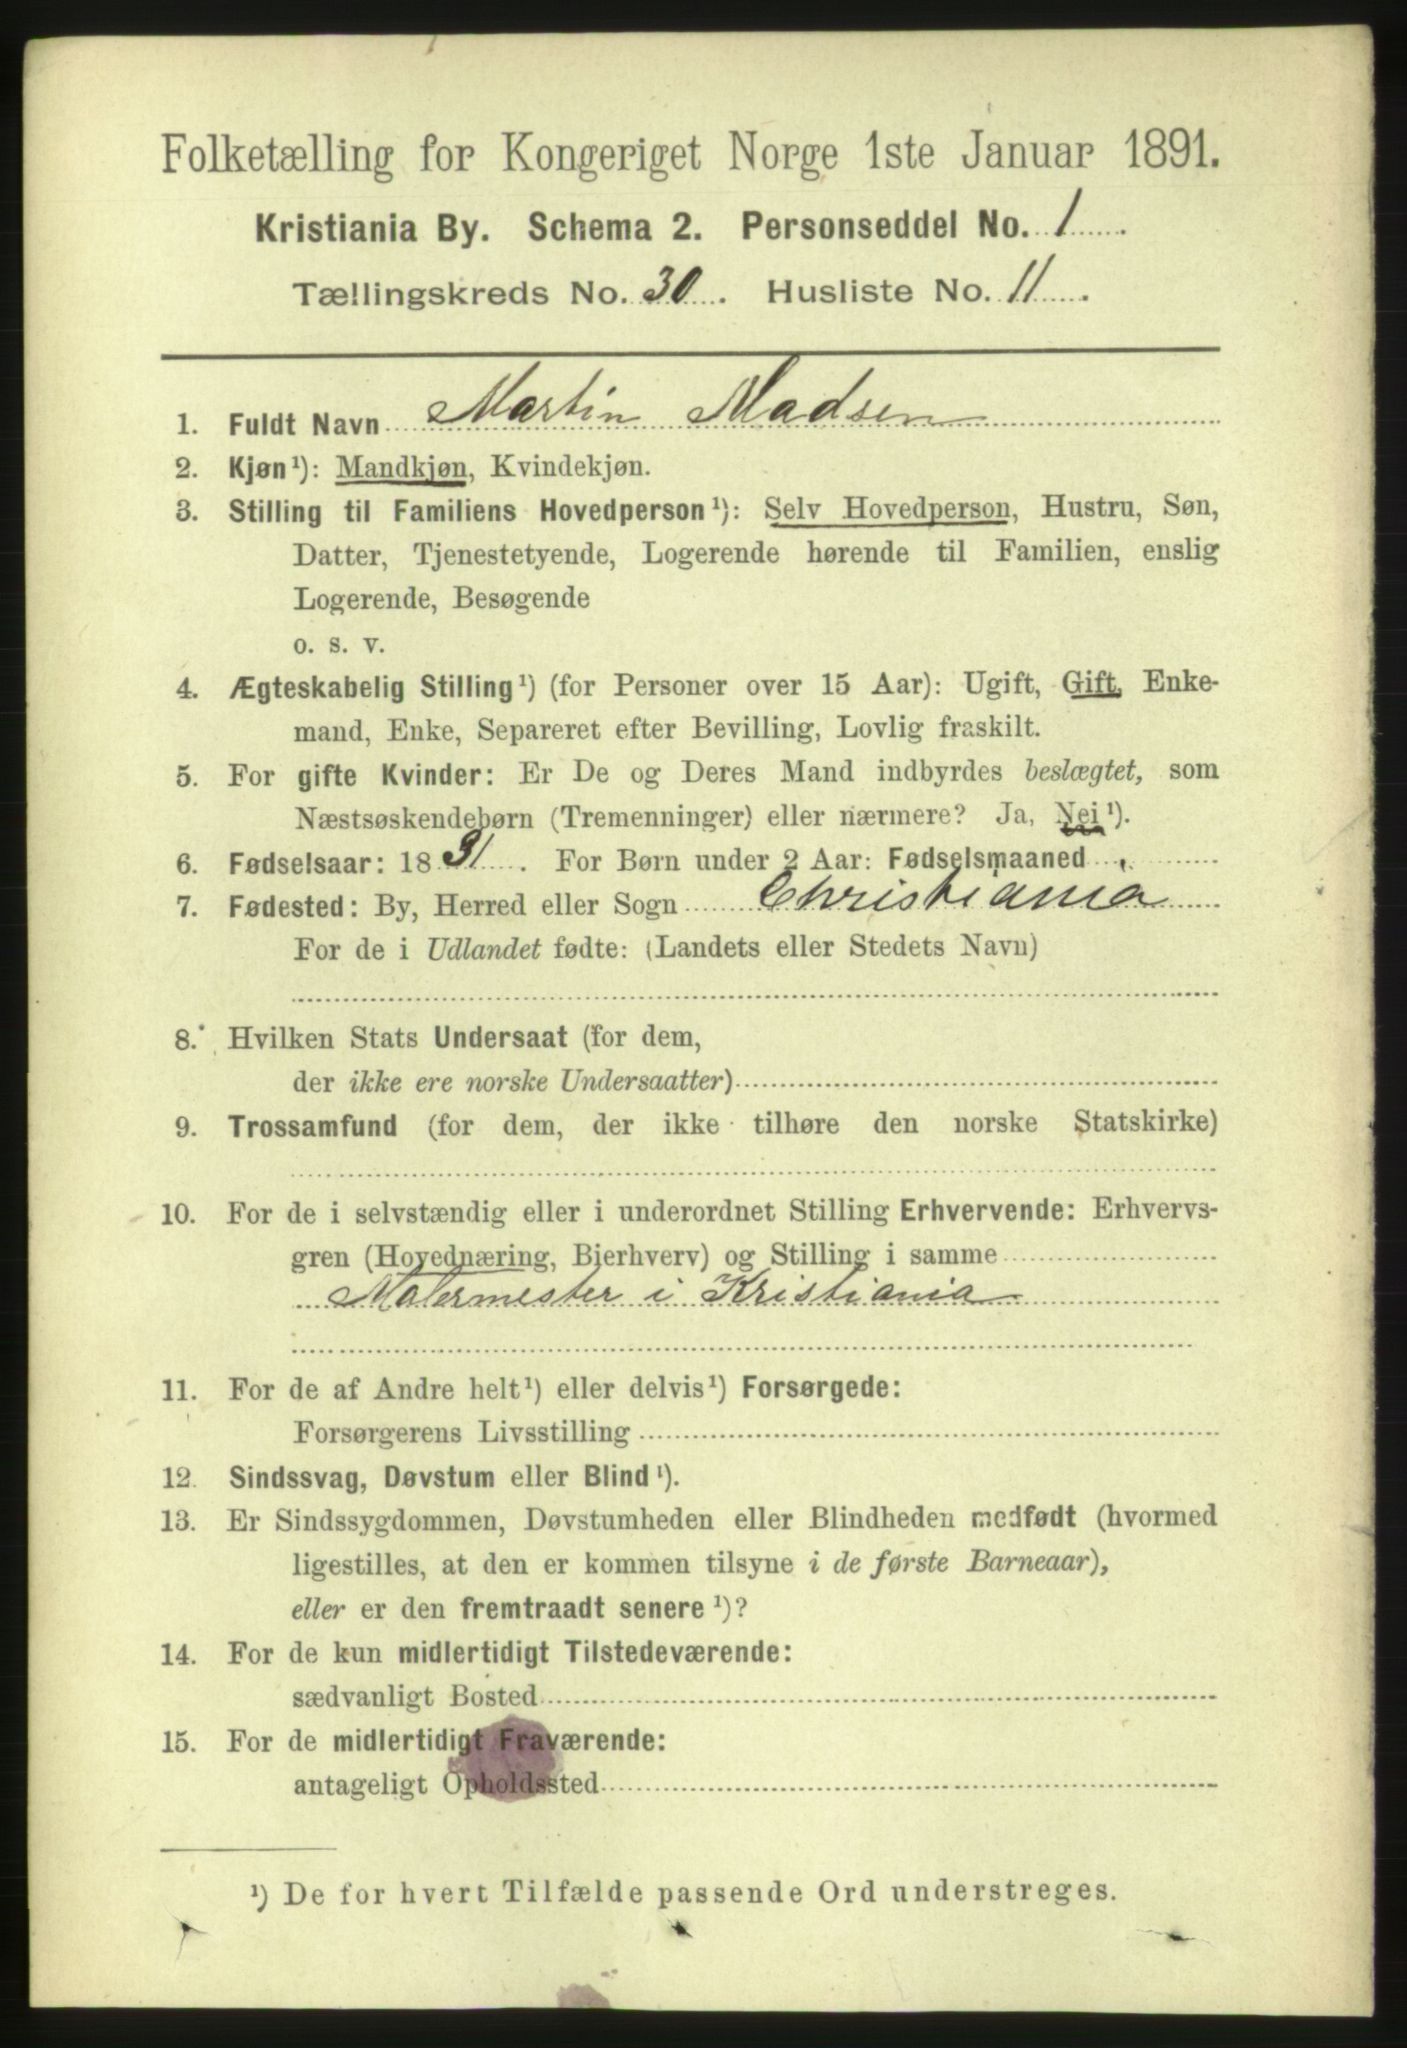 Folketælling for Kongeriget Norge 1ste Januar 1891.
Kristiania By. Schema 2. Personseddel No. 1
Tællingskreds No. 30. Husliste No. 11
1. Fuldt Navn Martin Madsen
2. Kjøn¹): Mandkjøn, Kvindekjøn.
3. Stilling til Familiens Hovedperson¹): Selv Hovedperson, Hustru, Søn,
Datter, Tjenestetyende, Logerende hørende til Familien, enslig
Logerende, Besøgende
o. s. v.
4. Ægteskabelig Stilling¹) (for Personer over 15 Aar): Ugift, Gift, Enke-
mand, Enke, Separeret efter Bevilling, Lovlig fraskilt.
5. For gifte Kvinder: Er De og Deres Mand indbyrdes beslægtet, som
Næstsøskendebørn (Tremenninger) eller nærmere? Ja, Nei¹).
6. Fødselsaar: 1831. For Børn under 2 Aar: Fødselsmaaned
7. Fødested: By, Herred eller Sogn Christiania
For de i Udlandet fødte: (Landets eller Stedets Navn)
8. Hvilken Stats Undersaat (for dem,
der ikke ere norske Undersaatter)
9. Trossamfund (for dem, der ikke tilhøre den norske Statskirke)
10. For de i selvstændig eller i underordnet Stilling Erhvervende: Erhvervs-
gren (Hovednæring, Bierhverv) og Stilling i samme
Malermester i Kristiania
11. For de af Andre helt¹) eller delvis¹) Forsørgede:
Forsørgerens Livsstilling
12. Sindssvag, Døvstum eller Blind¹).
13. Er Sindssygdommen, Døvstumheden eller Blindheden medfødt (hvormed
ligestilles, at den er kommen tilsyne i de første Barneaar),
eller er den fremtraadt senere¹)?
14. For de kun midlertidigt Tilstedeværende:
sædvanligt Bosted
15. For de midlertidigt Fraværende:
antageligt Opholdssted
¹) De for hvert Tilfælde passende Ord understreges.